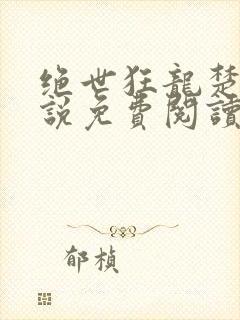 绝世狂龍楚
說免費閱讀
郁楨